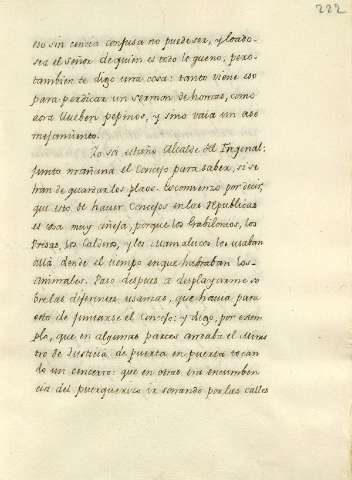 222
eso sin cencia confusa no puede ser, y loado-
sea el señor de quien es todo lo gueno; pero-
tambien te digo una cosa: tanto viene eso
para perdicar un sermon de honras, como
aora llueben pepinos, y sino vaia un aso
mejamiento.
Yo soi estaño Alcalde del Ingenal:
junto mañana el Concejo para saber, si se
han de guardar los plaos: Yo comienzo por decir,
que esto de hacer Concejos en las Republicas
es cosa muy añeja, porque los Babilonios, los
Presas, los Caldeos, y los Mamelucos los usaban
allá donde el tiempo en que habraban los-
animales. Paso despues a desplayarme so
bre las diferentes usanzas, que havia para
esto de juntarse el Concejo: y digo, por exem
plo, que en algunas partes andaba el Minis
tro de Justicia de puerta en puerta tocan
do un cencerro: que en otras era encumben
cia del puerquerizo ir sonando por las calles